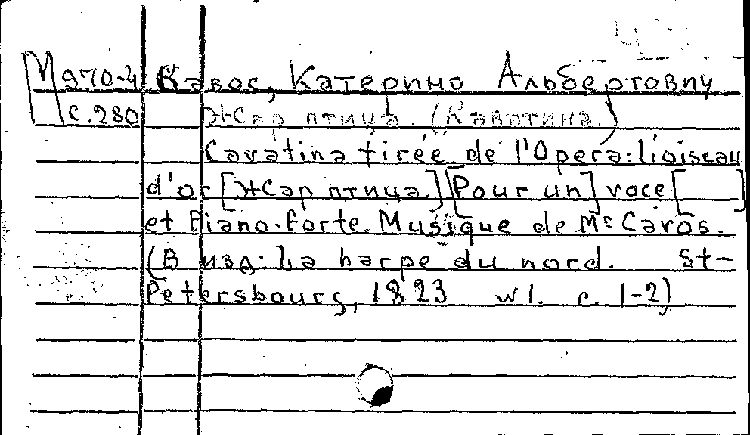 М 970-4 Кавос, Катерино Альбертович
с. 280 Жар птица. (Каватина.)
Cavatina tirée de l'Opera: l'oiseau
d'or [Жар птица.] [Pour un] voce [ ]
et Piano-forte. Musique de Mr Cavos.
(В изд: La harpe du nord. St-
Petersbourg, 1823 с. 1-2)